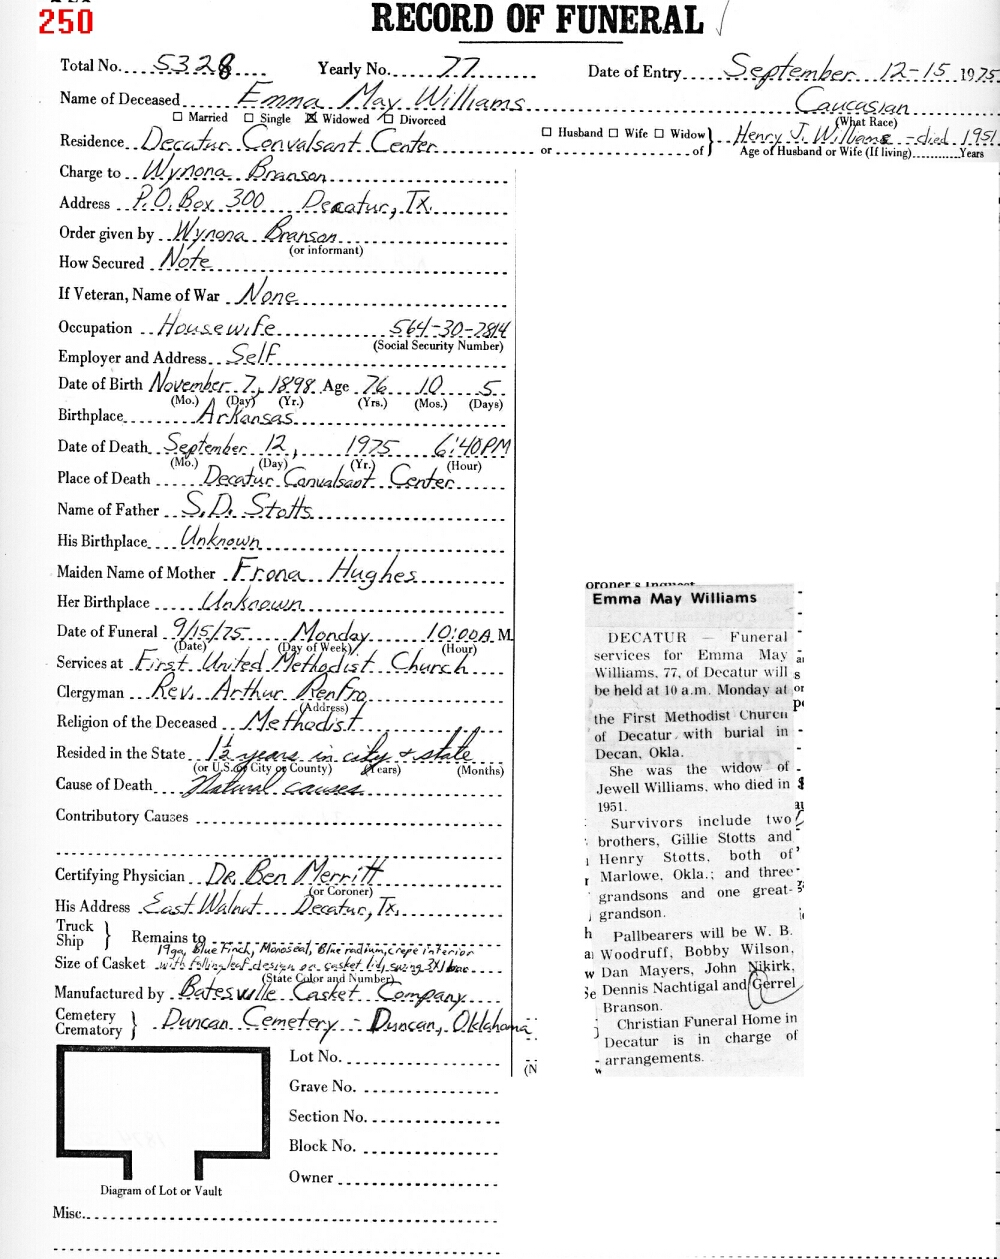 250
RECORD OF FUNERAL
Total No. 5328 Yearly No. 77 Date of Entry September 12-15 1975
Name of Deceased Emma May Williams Caucasian
☐ Married ☐ Single ☒ Widowed ☐ Divorced (What Race)
Residence Decatur Convalsant Center ☐ Husband ☐ Wife ☐ Widow or of } Henry J. Williams - died 1951
Age of Husband or Wife (If living) Years
Charge to Wynona Branson
Address P.O. Box 300 Decatur, Tx.
Order given by Wynona Branson
(or informant)
How Secured Note
If Veteran, Name of War None
Occupation Housewife 564-30-2814
(Social Security Number)
Employer and Address Self
Date of Birth November 7, 1898 Age 76 10 5
(Mo.) (Day) (Yr.) (Yrs.) (Mos.) (Days)
Birthplace Arkansas
Date of Death September 12, 1975 6:40PM
(Mo.) (Day) (Yr.) (Hour)
Place of Death Decatur Convalsant Center
Name of Father S.D. Stotts
His Birthplace Unknown
Maiden Name of Mother Frona Hughes
Her Birthplace Unknown
Date of Funeral 9/15/75 Monday 10:00A M.
(Date) (Day of Week) (Hour)
Services at First United Methodist Church
Clergyman Rev. Arthur Renfro
(Address)
Religion of the Deceased Methodist
Resided in the State 1½ years in city & state
(or U.S. or City or County) (Years) (Months)
Cause of Death Natural causes
Contributory Causes
Certifying Physician Dr. Ben Merritt
(or Coroner)
His Address East Walnut Decatur, Tx.
Truck
Ship } Remains to
19ga, Blue Finch, Monoseal, Blue radium, crepe interior
Size of Casket with falling leaf design on casket lid, swing
(State Color and Number)
Manufactured by Batesville Casket Company
Cemetery
Crematory } Duncan Cemetery - Duncan, Oklahoma
Lot No.
Grave No.
Section No.
Block No.
Owner
Diagram of Lot or Vault
Misc.
oroner's Inquest
Emma May Williams
DECATUR — Funeral
services for Emma May
Williams, 77, of Decatur will
be held at 10 a.m. Monday at
the First Methodist Church
of Decatur with burial in
Decan, Okla.
She was the widow of
Jewell Williams, who died in
1951.
Survivors include two
brothers, Gillie Stotts and
Henry Stotts, both of
Marlowe, Okla.; and three
grandsons and one great-
grandson.
Pallbearers will be W. B.
Woodruff, Bobby Wilson,
Dan Mayers, John Nikirk,
Dennis Nachtigal and Gerrel
Branson.
Christian Funeral Home in
Decatur is in charge of
arrangements.
(N